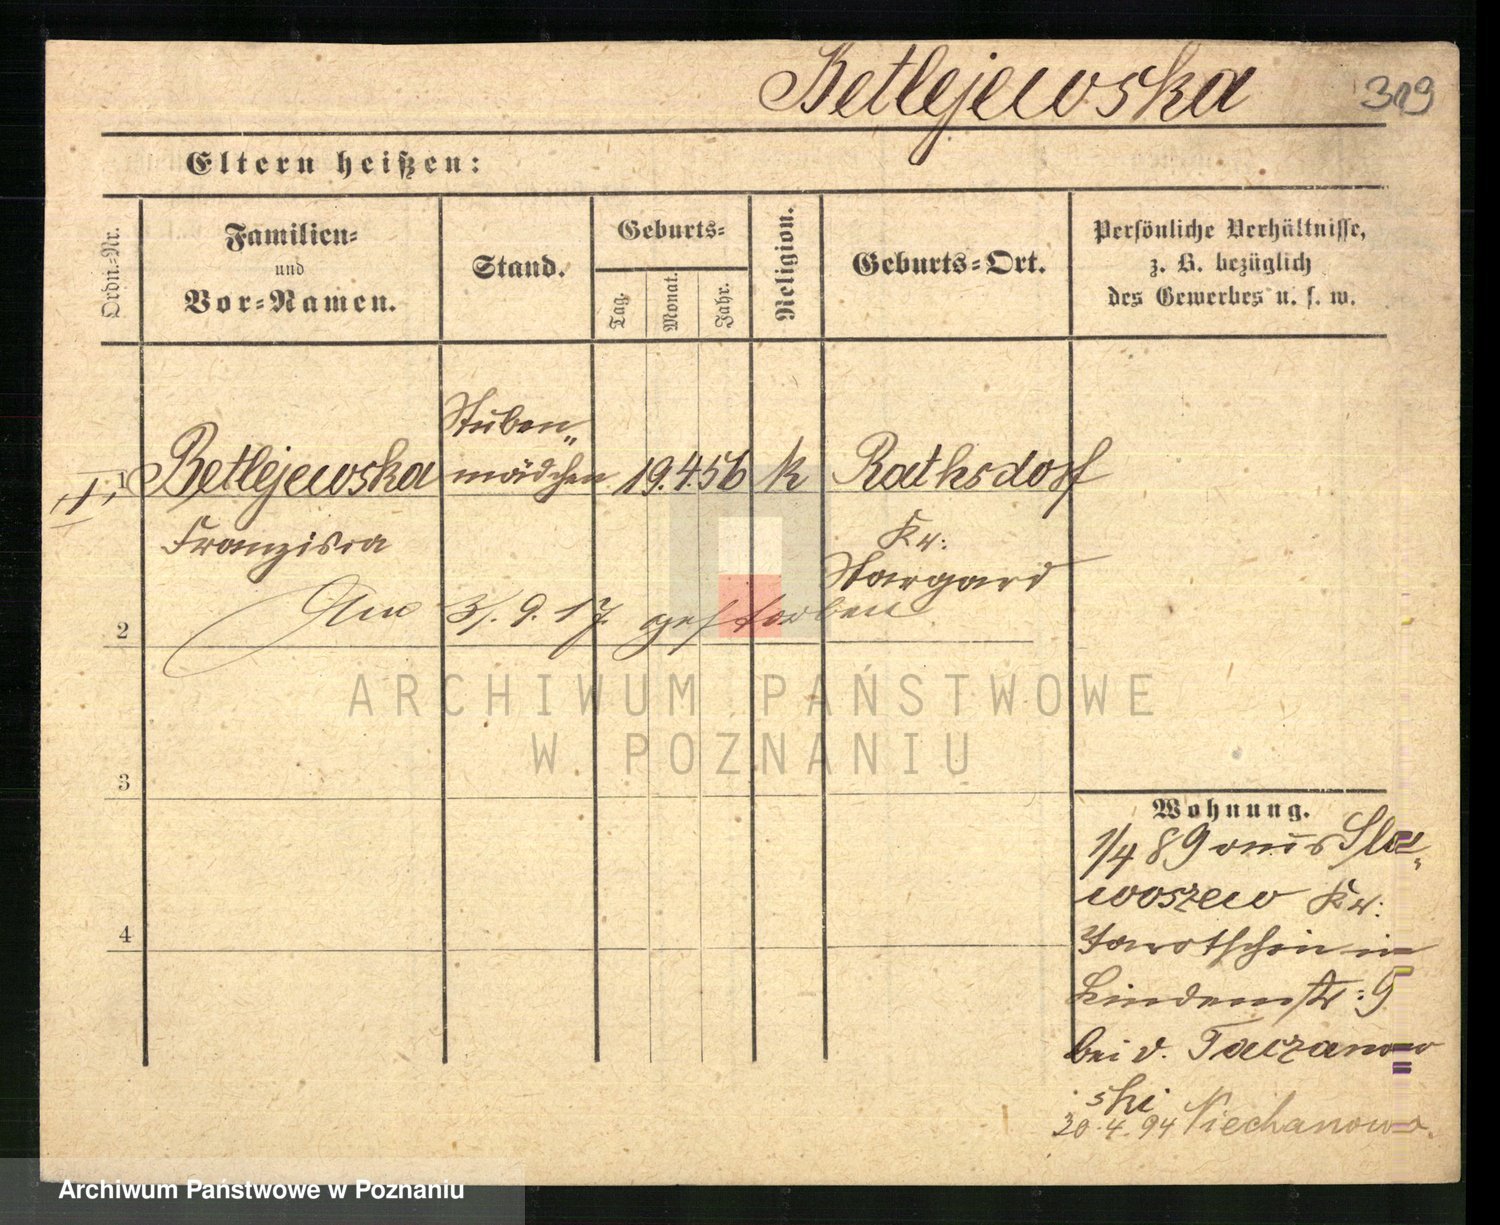 Betlejewska 319
Eltern heißen:
Ordn.-Nr.
Familien-
und
Vor-Namen.
Stand.
Geburts-
Tag.
Monat.
Jahr.
Religion.
Geburts-Ort.
Persönliche Verhältnisse,
z. B. bezüglich
des Gewerbes u. s. w.
1
Betlejewska
Franziska
Stuben„
mädchen
19.4.56
k
Rathsdorf
Kr:
Stargard
Am 3/. 9. 17. gestorben
2
3
4
Wohnung.
1/4 89 aus Sla„
woszew Kr:
Jarotschin in
Lindenstr: 9
bei v. Taczanow
ski
30.4.94 Niechanowo.
ARCHIWUM PAŃSTWOWE
W POZNANIU
Archiwum Państwowe w Poznaniu